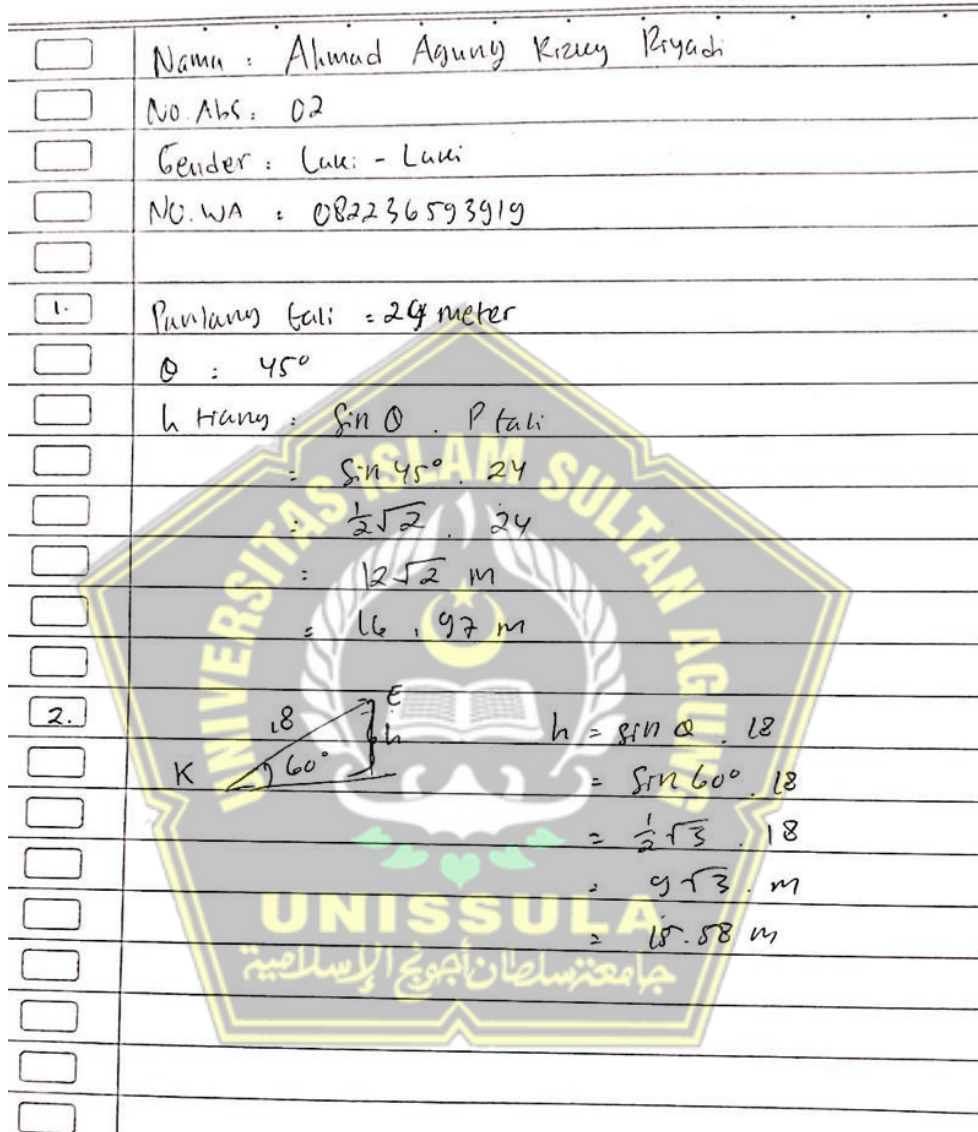 Nama : Ahmad Agung Rizky Riyadi
No. Abs : 02
Gender : Laki - Laki
NO. WA : 082236593919
1. Panjang tali = 24 meter
θ : 45°
h tiang : Sin θ . P tali
= Sin 45° . 24
= 1/2 √2 . 24
= 12√2 m
= 16,97 m
2. 18 E h
K 60°
h = sin θ . 18
= Sin 60° . 18
= 1/2 √3 . 18
= 9√3 . m
= 15.58 m
UNIVERSITAS ISLAM SULTAN AGUNG
UNISSULA
جامعة سلطان أجونج الإسلامية